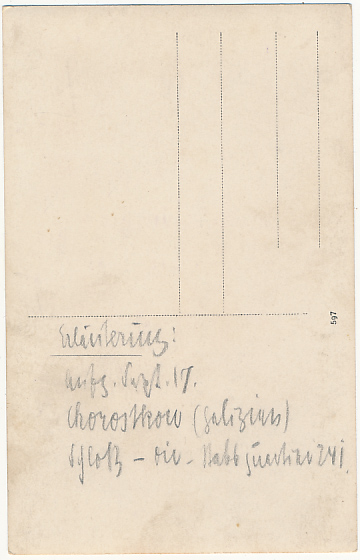 Erläuterung:
Anfg. Sept. 17.
Chorostkow (Galizien)
Schloß – Div. Stabsquartier 241.
597